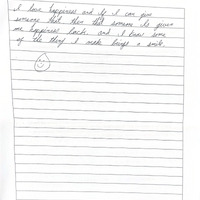 I love happiness and if I can give
someone that then that someone is given
me happiness back. and I know some
of the thing I make bring a smile.